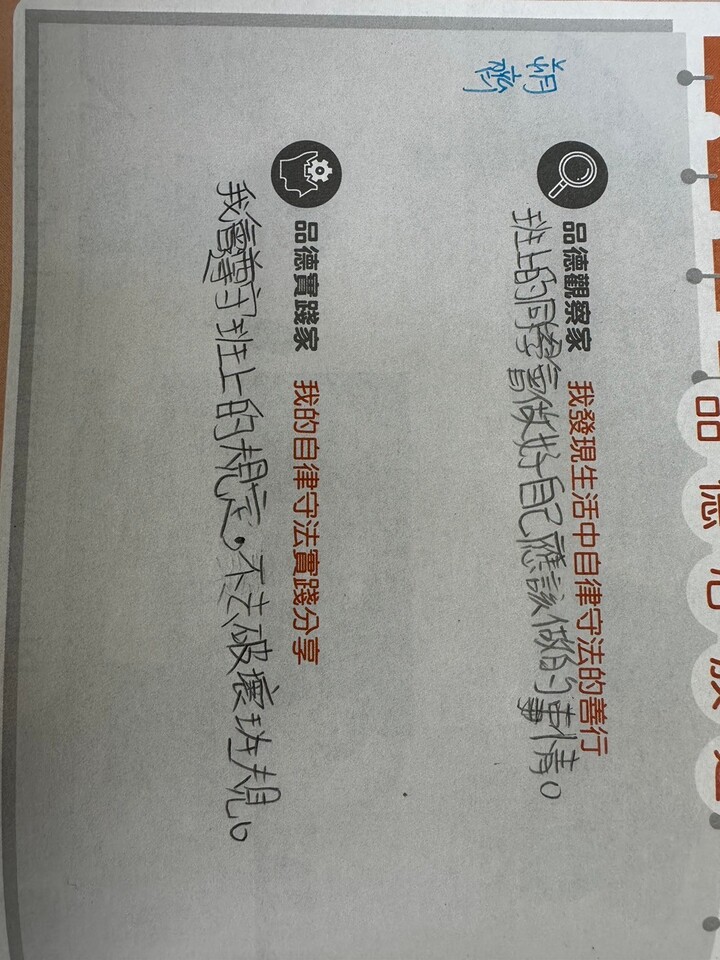 品德
朔齊
品德觀察家 我發現生活中自律守法的善行
班上的同學會做好自己應該做的事情。
品德實踐家 我的自律守法實踐分享
我會遵守班上的規定，不去破壞班規。